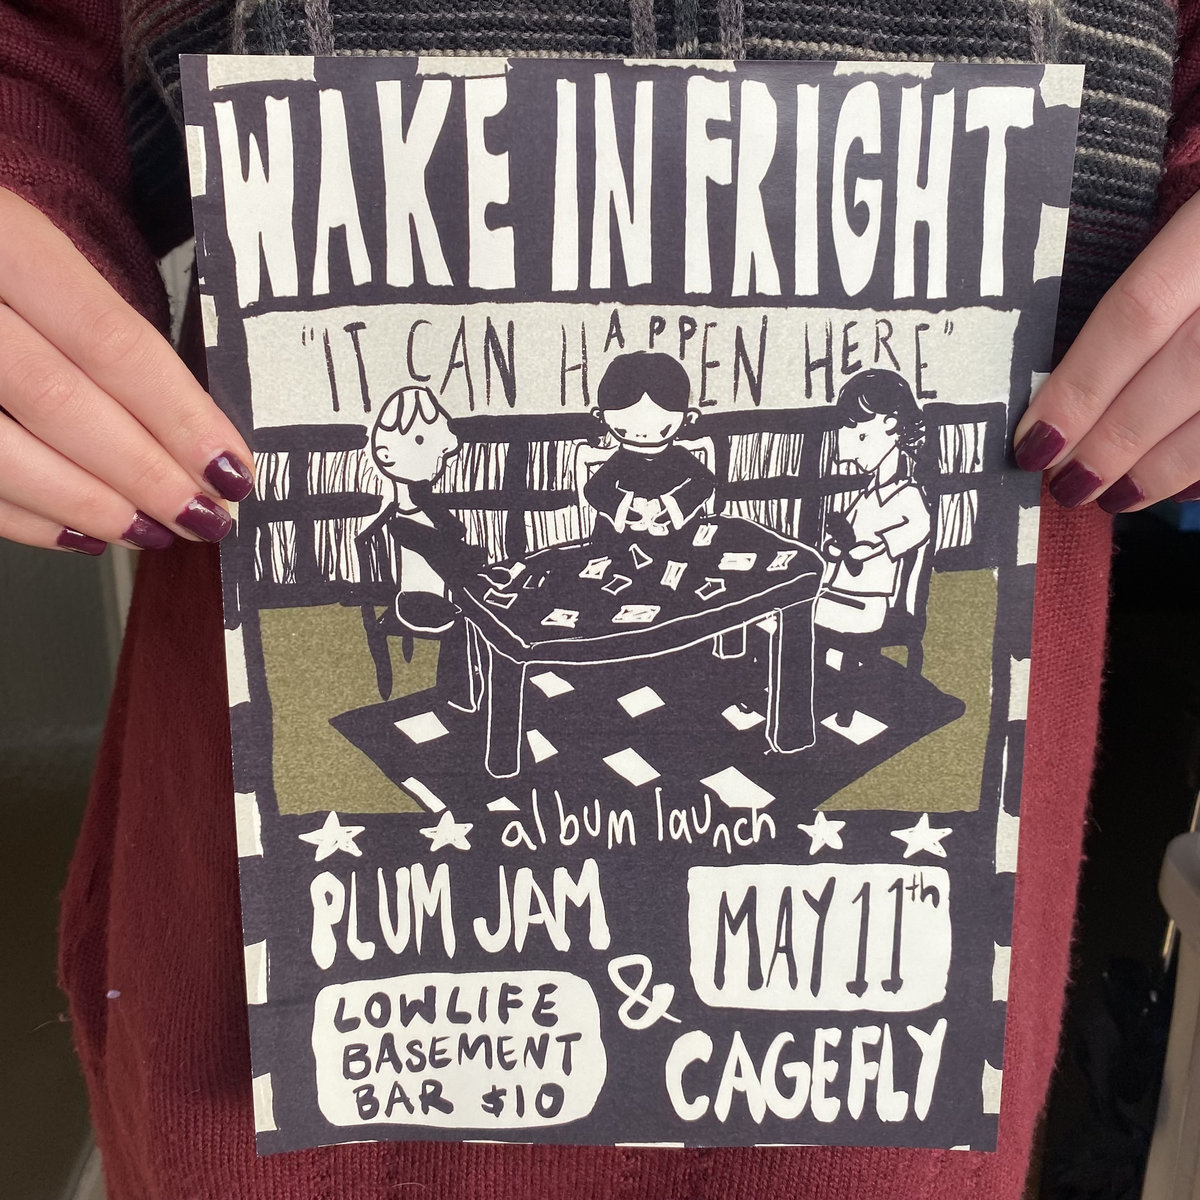 WAKE IN FRIGHT
"IT CAN HAPPEN HERE"
album launch
PLUM JAM
&
CAGEFLY
MAY 11th
LOWLIFE
BASEMENT
BAR $10